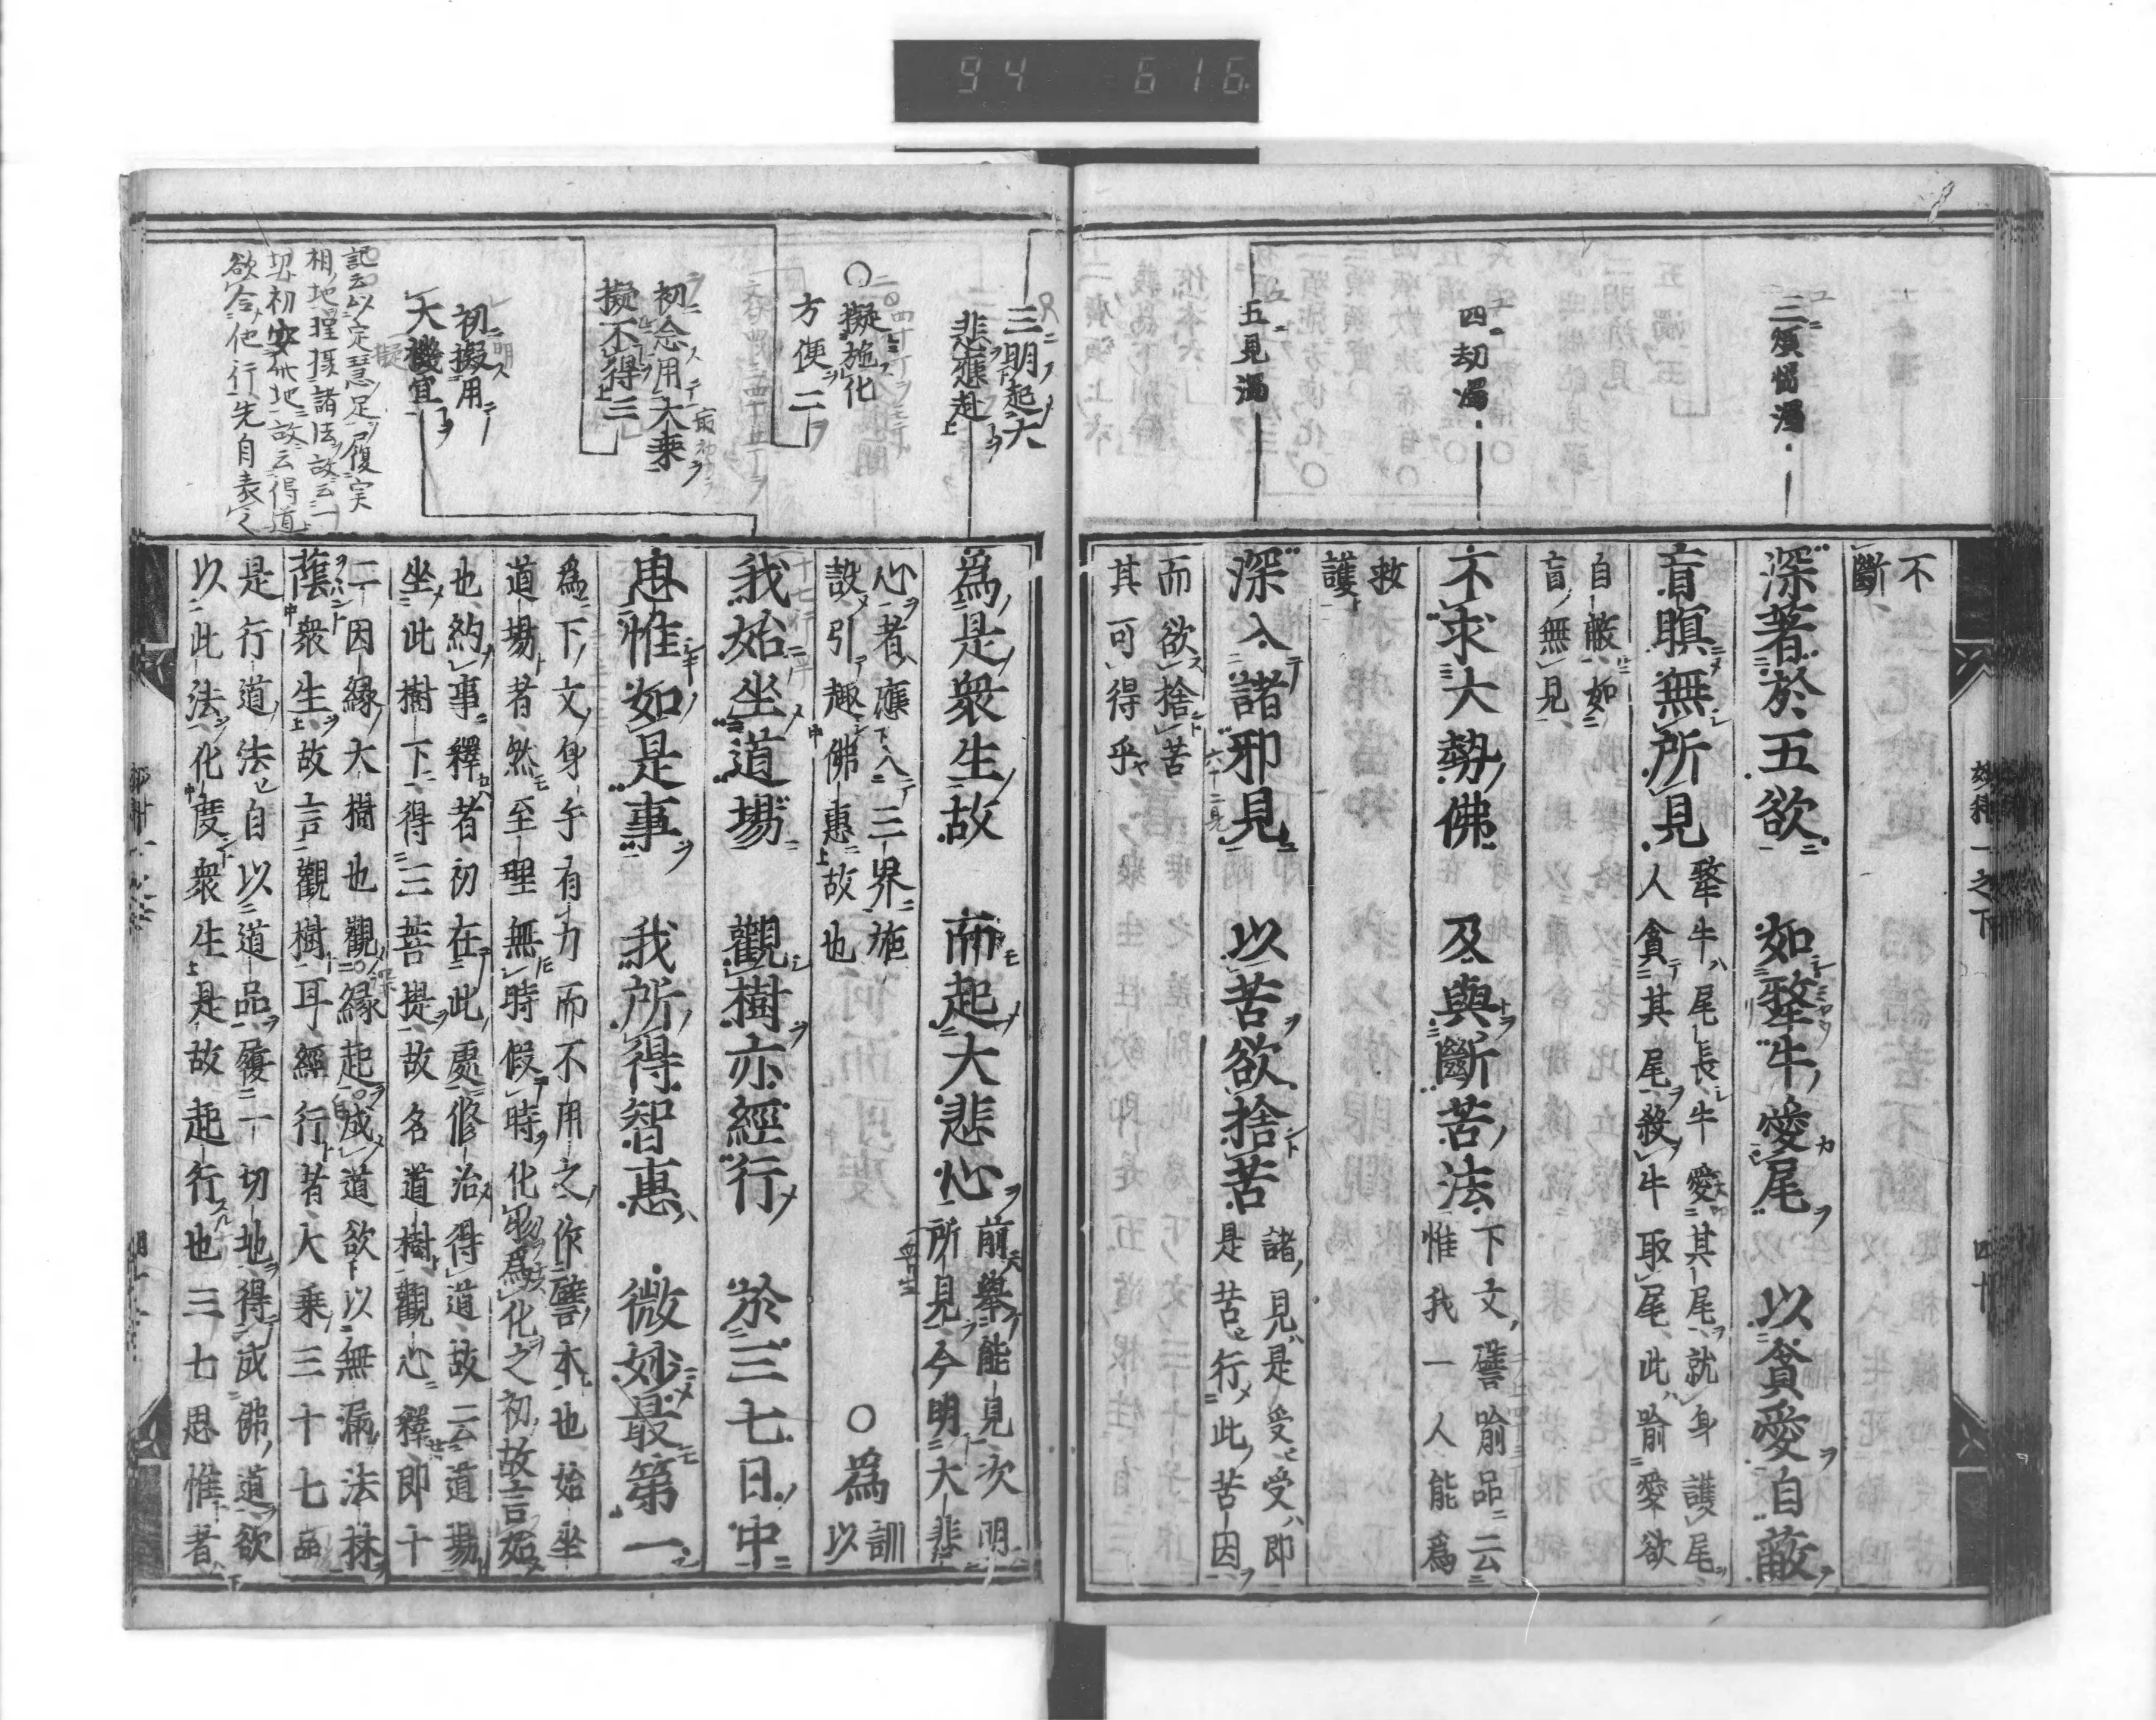 94 616
三煩惱濁
四劫濁
五見濁
不
斷
深著於五欲 如犛牛愛尾 以貪愛自蔽
盲瞑無所見
犛牛尾長牛愛其尾就身護尾
人貪其尾殺牛取尾此喻愛欲
自蔽如
盲無見
不求大勢佛 及與斷苦法
下文譬喻品云
惟我一人能爲
救
護
深入諸邪見 以苦欲捨苦
六十二見
諸見是受受即
是苦行此苦因
而欲捨苦
其可得乎
妙經一之下
四十
三明起大
悲應赴
擬施化
方便二
初念用大乘
擬不得三
初擬用
大機宜
記云以定慧足履実
相地理摂諸法故云一
切初安所地故云得道
欲令他行先自表之
為是衆生故 而起大悲心
前舉能見次明
所見今明大悲
心者應入三界施
設引趣佛惠故也
○為
訓
以
我始坐道場 觀樹亦經行 於三七日中
思惟如是事 我所得智惠 微妙最第一
爲下文身手有力而不用之作譬本也始坐
道場者然至理無時假時化物爲化之初故言始
也約事釋者初在此處修治得道故云道場
坐此樹下得三菩提故名道樹觀心釋即十
二因緣大樹也觀緣起成道欲以無漏法林
蔭衆生故言觀樹耳經行者大乘三十七品
是行道法自以道品履一切地得成佛道欲
以此法化度衆生是故起行也三七思惟者